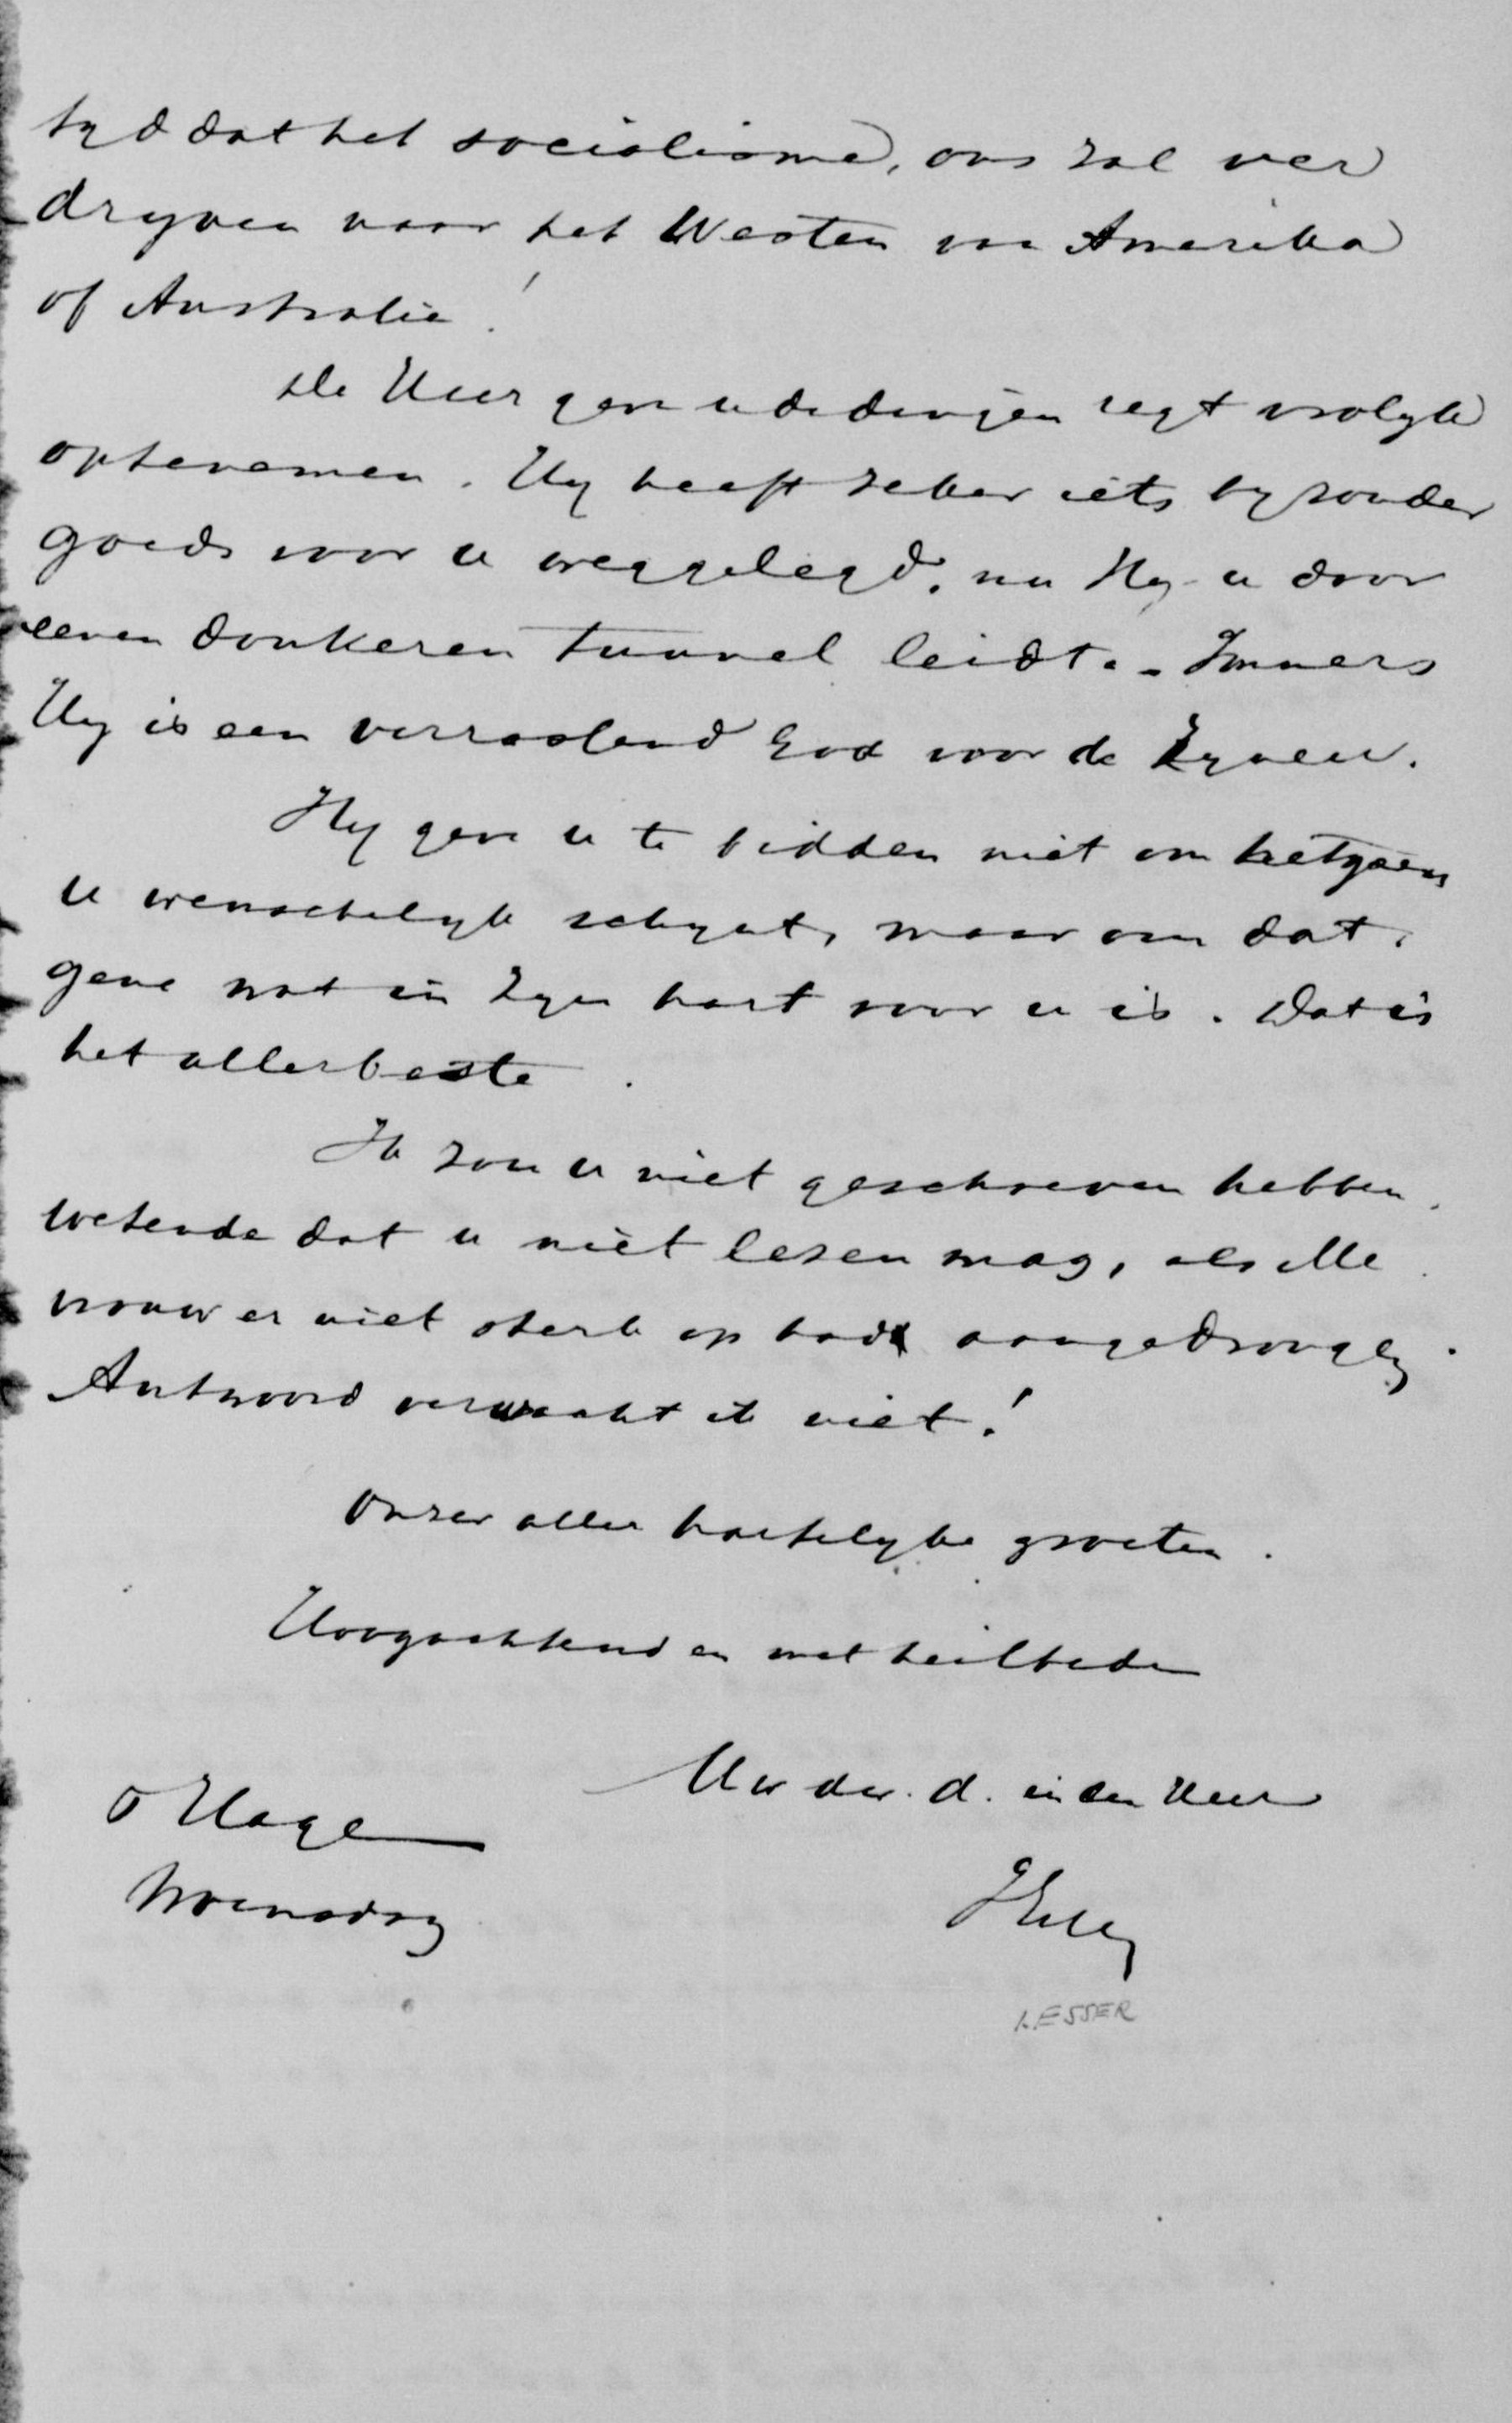 tyd dat het socialisme, ons zal ver
dryven naar het Westen van Amerika
of Australie!
De Heer geve u de dingen regt vrolyk
optenemen. Hy heeft zeker iets byzonder
goeds voor u weggelegd, nu Hy u door
eenen donkeren tunnel leidt. - Immers
Hy is een verrassend God voor de Zynen.
Hy geve u te bidden niet om hetgeen
u wenschelyk schynt, maar om dat
gene wat in Zyn hart voor u is. Dat is
het allerbeste.
Ik zou u niet geschreven hebben,
wetende dat u niet lezen mag, als Me
vrouw er niet sterk op had aangedrongen.
Antwoord verwacht ik niet!
Onzer aller hartelyke groeten.
Hoogachtend en met heilbede
Uw dw. d. in den Heer
s Hage
Woensdag
LESSER